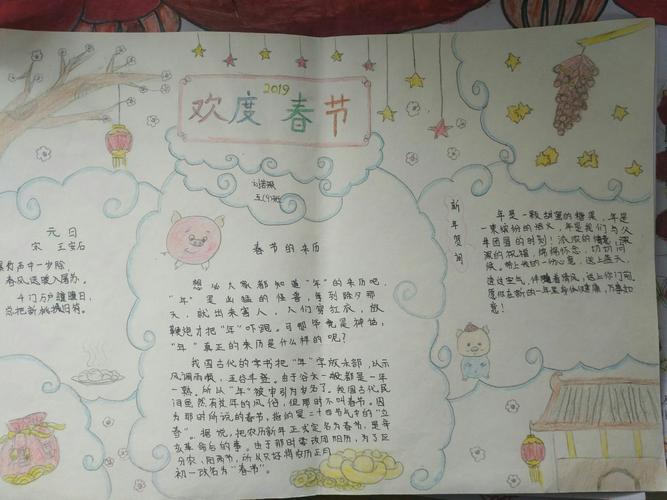 2019
欢度春节
五(9)班
元日
宋 王安石
爆竹声中一岁除
春风送暖入屠苏
千门万户曈曈日
总把新桃换旧符
春节的来历
想必大家都知道"年"的来历吧,
"年"是凶猛的怪兽,等到除夕那
天,就出来害人,人们穿红衣,放
鞭炮才把"年"吓跑。可那毕竟是神话,
"年"真正的来历是什么样的呢?
我国古代的字书把"年"字放禾部,以示
风调雨顺,五谷丰登。由于谷禾一般都是一年
一熟。所以"年"被申引为岁名了。我国古代民
间虽然有过年的风俗,但那时不叫春节。因
为那时所说的春节,指的是二十四节气中的"立
春"。据说,把农历新年正式定名为春节,是辛
亥革命后的事。由于那时要改用阳历,为了区
分农、阳两节,所以只好将农历正月
初一改名为"春节"。
新年贺词
年是一颗甜蜜的糖果,年是
一束缤纷的烟火,年是我们与父
母团圆的时刻!浓浓的情意,深
深的祝福,绵绵怀念,切切问
候。带上我的一份心意,送上蓝天,
透过空气,伴随着清风,送上你门前,
愿你在新的一年里身体健康,万事如
意!